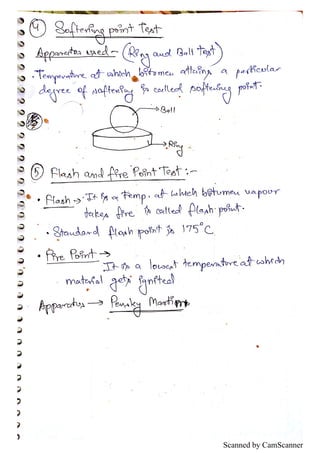 ④ Softening point Test
Apparatus used - (Ring and Ball test)
• Temperature at which bitumen attains a particular
degree of softening is called softening point.
→ Ball
→ Ring
⑤ Flash and fire Point Test :-
• Flash → It is a temp. at which bitumen vapour
takes fire is called flash point.
• Standard flash point is 175°C
• Fire Point →
It is a lowest temperature at which
material gets ignited
Apparatus → Pensky Martins
Scanned by CamScanner